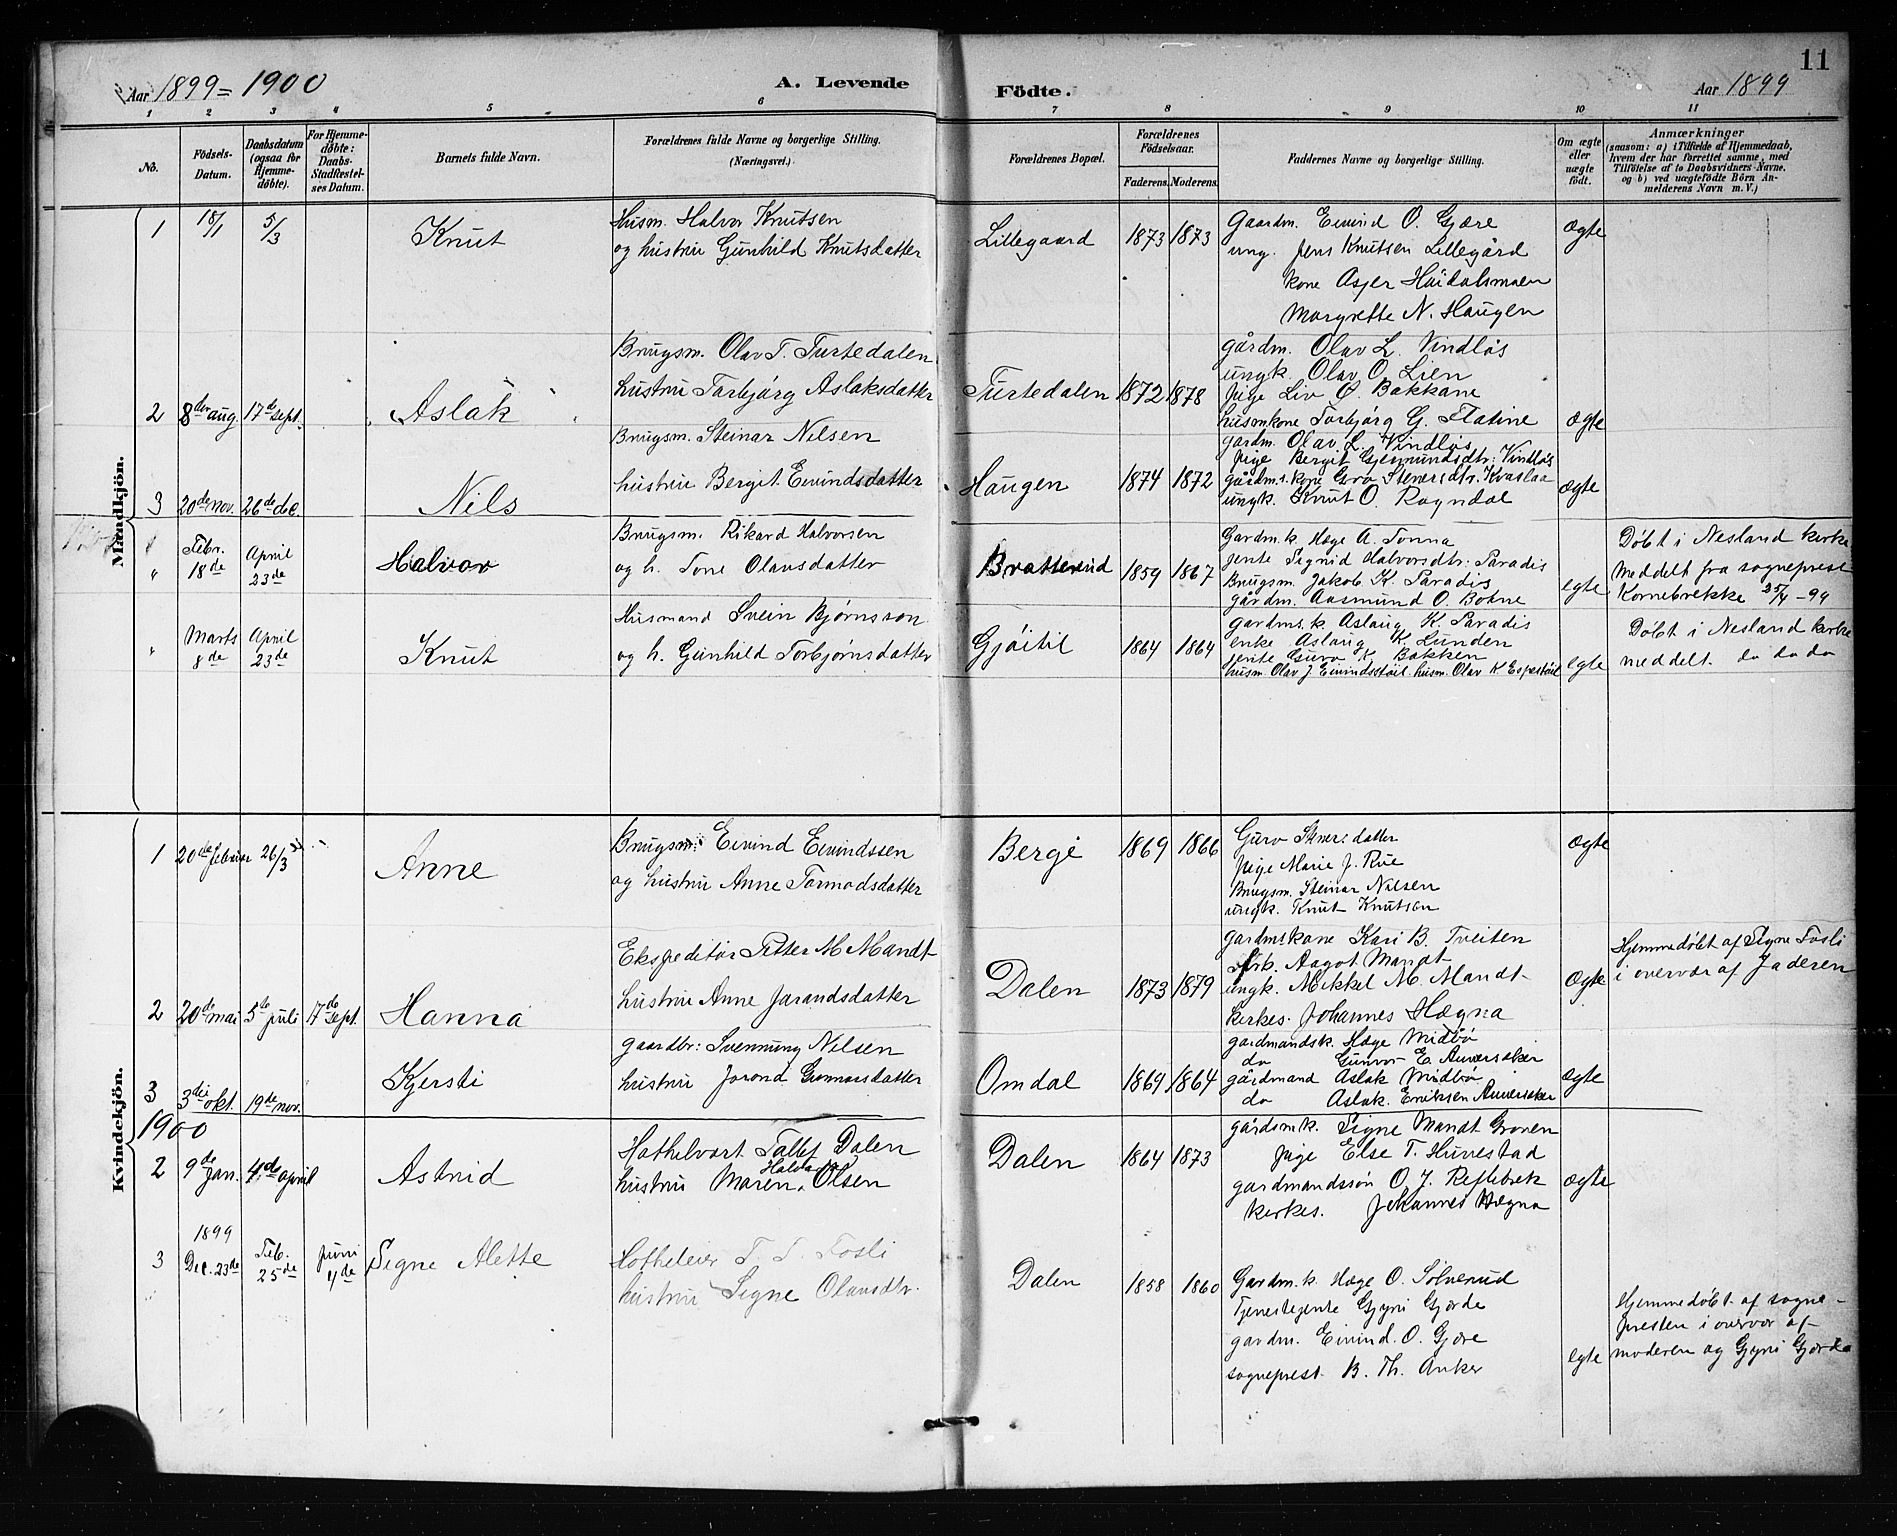 11
Aar 1899=1900 A. Levende Födte. Aar 1899
1 2 3 4 5 6 7 8 9 10 11
No.
Födsels-Datum.
Daabsdatum (ogsaa for Hjemme-döbte).
For Hjemme-döbte: Daabs-Stadfæstel-ses Datum.
Barnets fulde Navn.
Forældrenes fulde Navne og borgerlige Stilling. (Næringsvei.)
Forældrenes Bopæl.
Forældrenes Födselsaar.
Faderens. Moderens.
Faddernes Navne og borgerlige Stilling.
Om ægte eller uægte födt.
Anmærkninger
(saasom: a) i Tilfælde af Hjemmedaab, hvem der har forrettet samme, med Tilföielse af to Daabsvidners Navne, og b) ved uægtefödte Börn An-melderens Navn m. V.)
Mandkjön.
1 18/1 5/3 Knut
Husm. Halvor Knutsen
og hustru Gunhild Knutsdatter
Lillegaard 1873 1873
Gaardm. Eivind O. Gjære
ung. Jens Knutsen Lillegård
kone Asjer Håidalsmoen
Margrette N. Haugen
Ægte
2 8de aug. 17de sept. Aslak
Brugsm. Olav T. Turtedalen
hustru Torbjörg Aslaksdatter
Turtedalen 1872 1878
gårdm. Olav L. Vindlös
ungk. Olav O. Lien
Pige Liv O. Bakkane
husmkone Torbjörg G. Flatine
ægte
3 20de nov. 26de dec. Nils
Brugsm. Steinar Nilsen
hustru Bergit Eivindsdatter
Haugen 1874 1872
gardm. Olav L. Vindlös
Pige Bergit Gjermundsdtr. Vindlös
gårdm.s kone Gro Steinersdtr. Kvaslaa
ungk. Knut O. Rogndal
ægte
" Febr. 18de April 23de Halvor
Brugsm. Rikard Halvorsen
og h. Tone Olavsdatter
Bratterud 1859 1867
Gardm.k. Hæge A. Tonna
jente Signid Halvorsdtr: Paradis
Brugsm. Jakob K. Paradis
gårdm. Aasmund O. Böhne
egte
Döbt i Nesland kirke
meddelt fra sogneprest
Kornebrekke 25/4 - 99
" Marts 8de April 23de Knut
Husmand Svein Bjørnsson
og h. Gunhild Torbjørnsdatter
Gjöitil 1864 1864
gardms.k Aslaug K. Paradis
enke Aslaug K. Lunden
jente Guro K. Bakken
husm. Olav J. Eivindsstöil. husm. Olav K Espestöil
egte
Döbt i Nesland kirke
meddelt. do do do
Kvindekjön.
1 20de februar 26/3 Anne
Brugsm: Eivind Eivindssen
og hustru Anne Tarmodsdatter
Berge 1869 1866
Guro Steinersdatter
Pige Marie J. Rue
Brugsm. Steinar Nilsen
ungk. Knut Knutsen
Ægte
2 20de mai 5te juli 17de sept. Hanna
Ekspeditör Petter M Mandt
hustru Anne Jarandsdatter
Dalen 1873 1879
gardmskone Kari B. Tveiten
Frk. Aagot Mandt
ungk. Mikkel M. Mandt
kirkes. Johannes Hægna
Ægte
Hjemmedöbt af Signe Fosli
i overvær af Jaderen
3 3die okt. 19de nov. Kjersti
gaardbr: Svennung Nilsen
hustru Jorond Gunnarsdatter
Omdal 1869 1864
gardmandsk. Hæge Midbö
do Gunvor E.
gårdmand Aslak Midbö
do Aslak. Eriksen
ægte
1900
2 9de Jan. 4de april Astrid
Hothelvært Tallef Dalen
hustru Maren Halvine Olsen
Dalen 1864 1873
gårdsm.k. Signe Mandt Groven
Pige Else T. Hunestad
gardmandssön O. J. Reftebrek
kirkes. Johannes Hægna
Ægte
3 1899 Dec. 23de Feb. 25de Juni 4de Signe Alette
Hotheleier T. T. Fosli
hustru Signe Olavsdtr.
Dalen 1858 1860
Gardm.k. Hæge O. Sölverud
Tjenestejente Gyri Gjörde
gardm. Eivind. O. Gjære
sogneprest B. Th. Anker
egte
Hjemmedöbt af sogne-
presten i overvær af
moderen og Gyri Gjörde